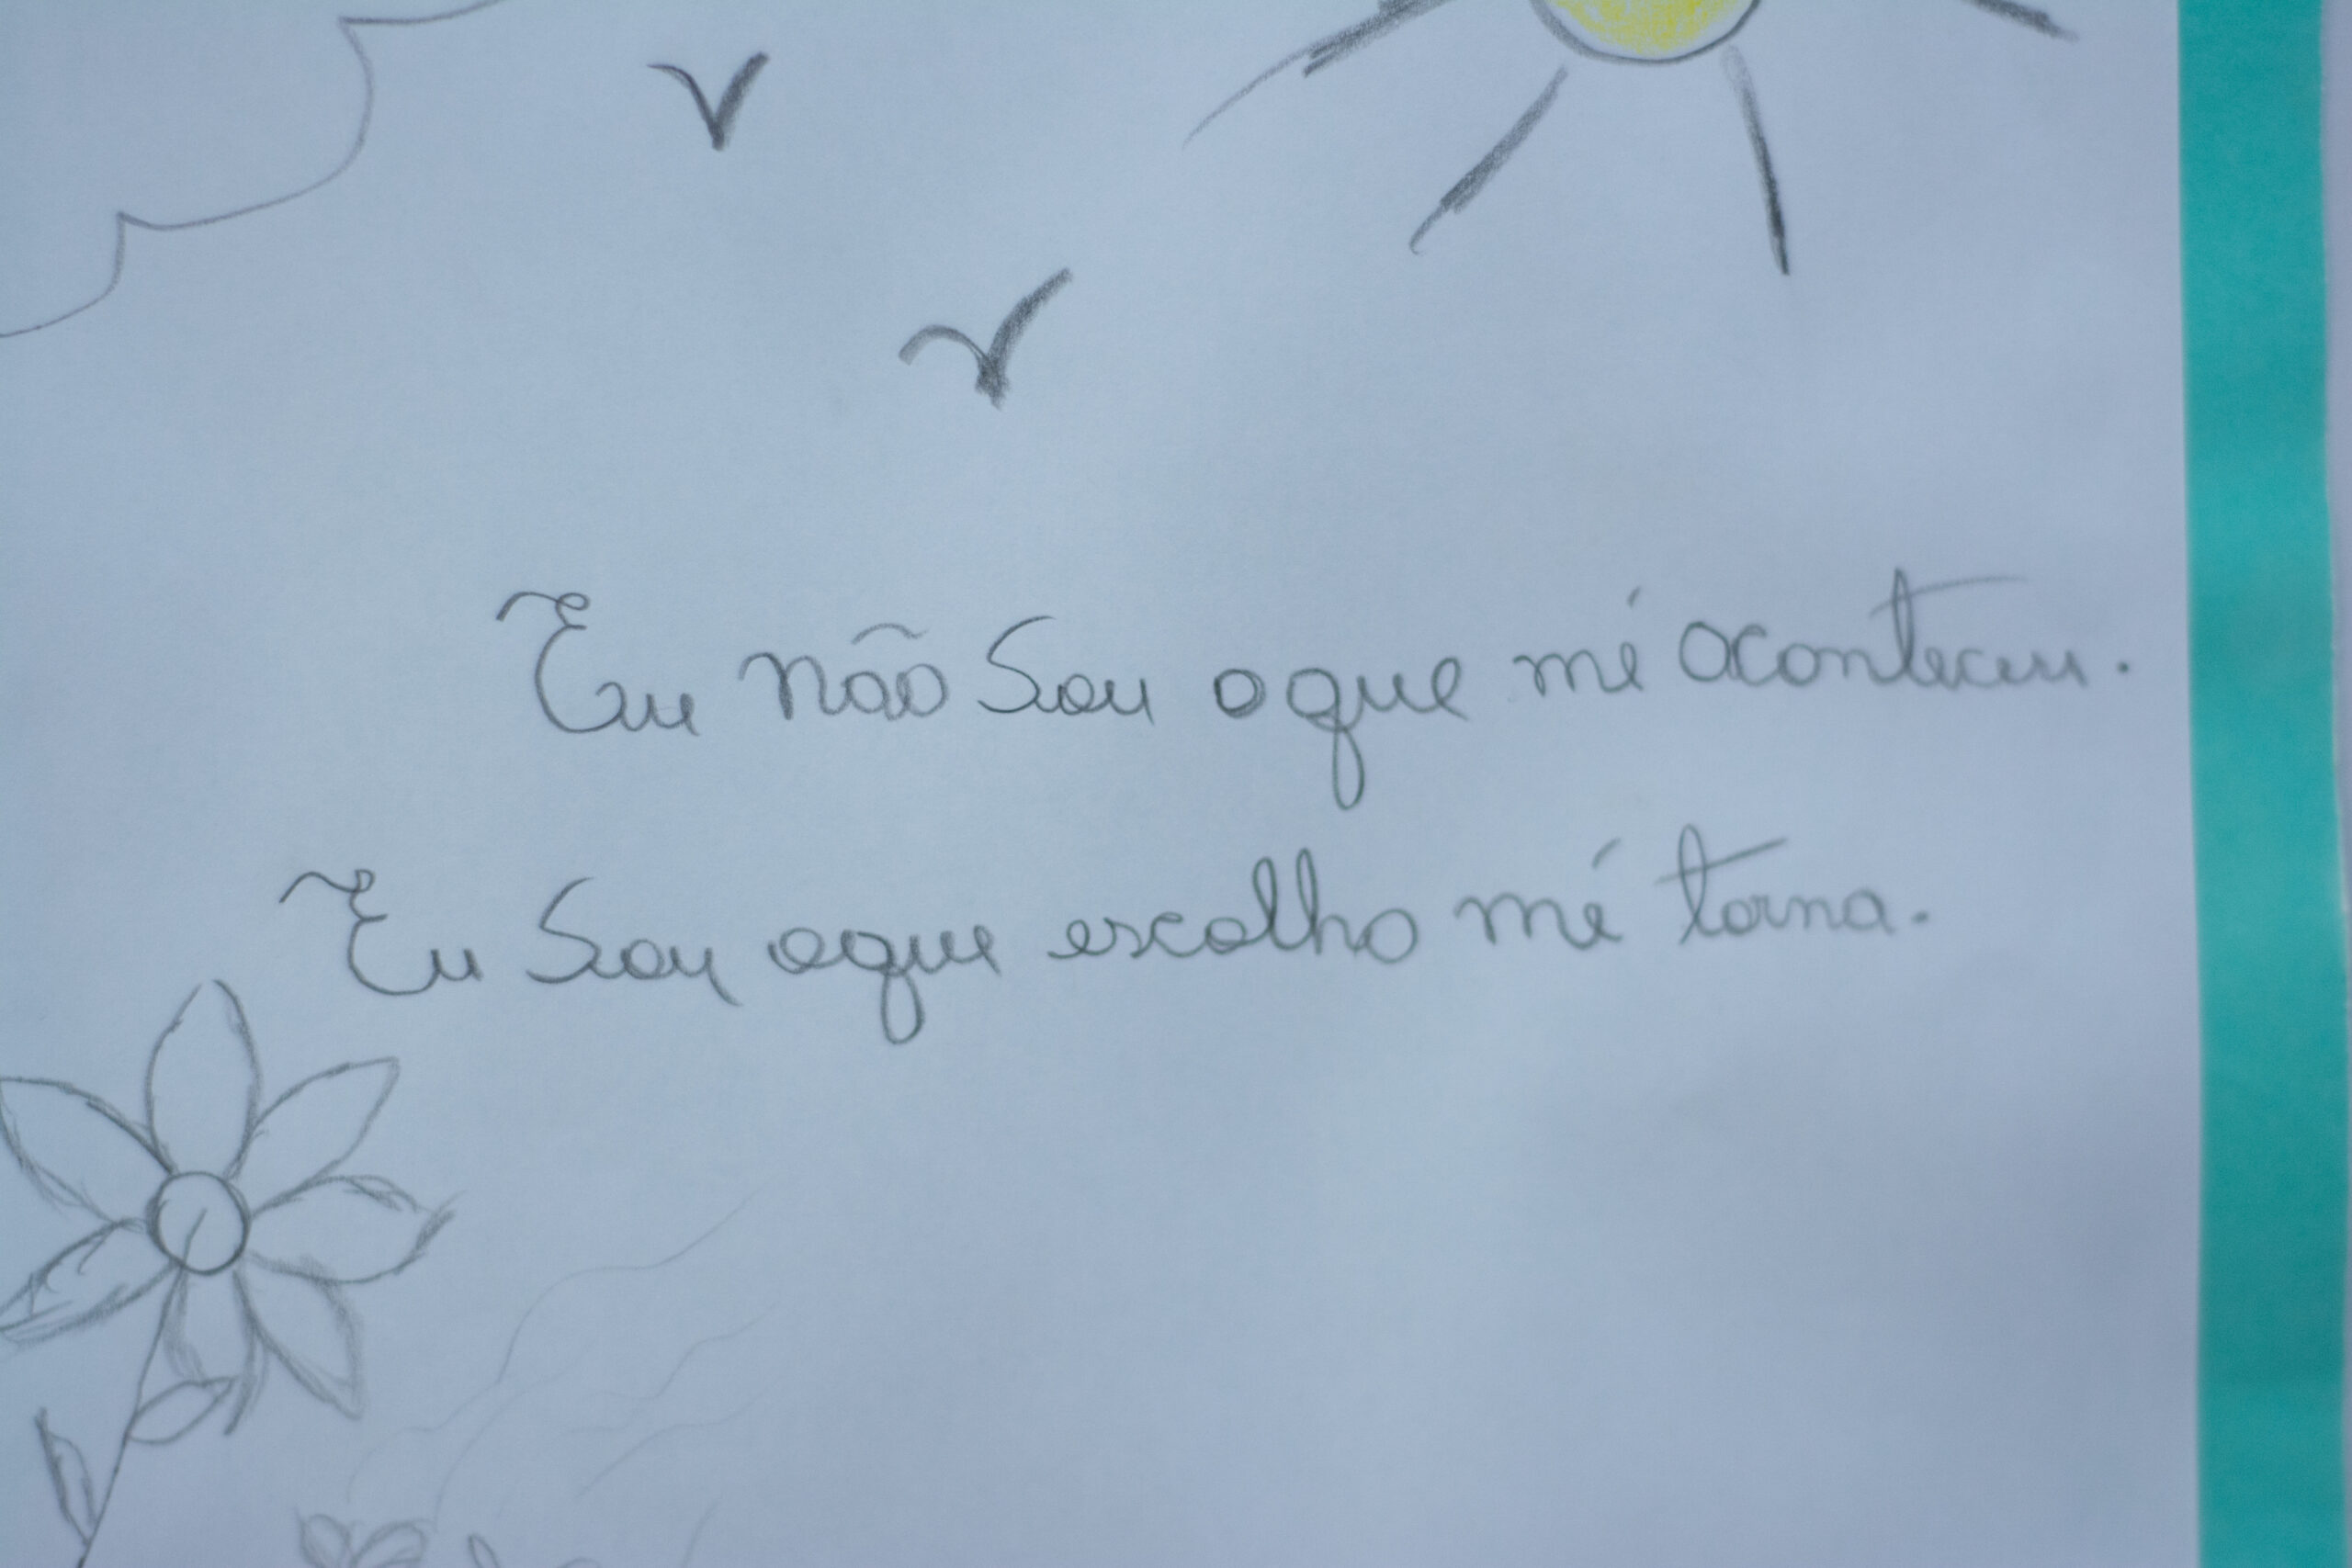 Eu não Sou o que mé aconteceu.
Eu Sou oque escolho mé torna.